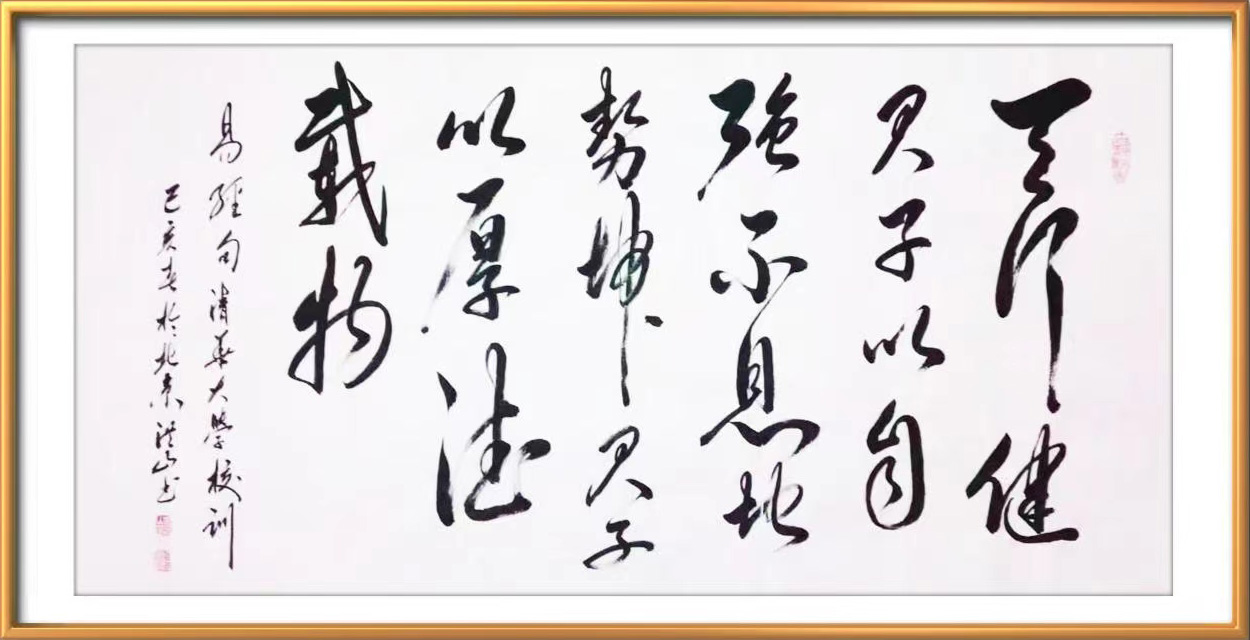 天行健
君子以自
強不息地
勢坤君子
以厚德
載物
易經句清華大學校訓
己亥春於北京洪山书